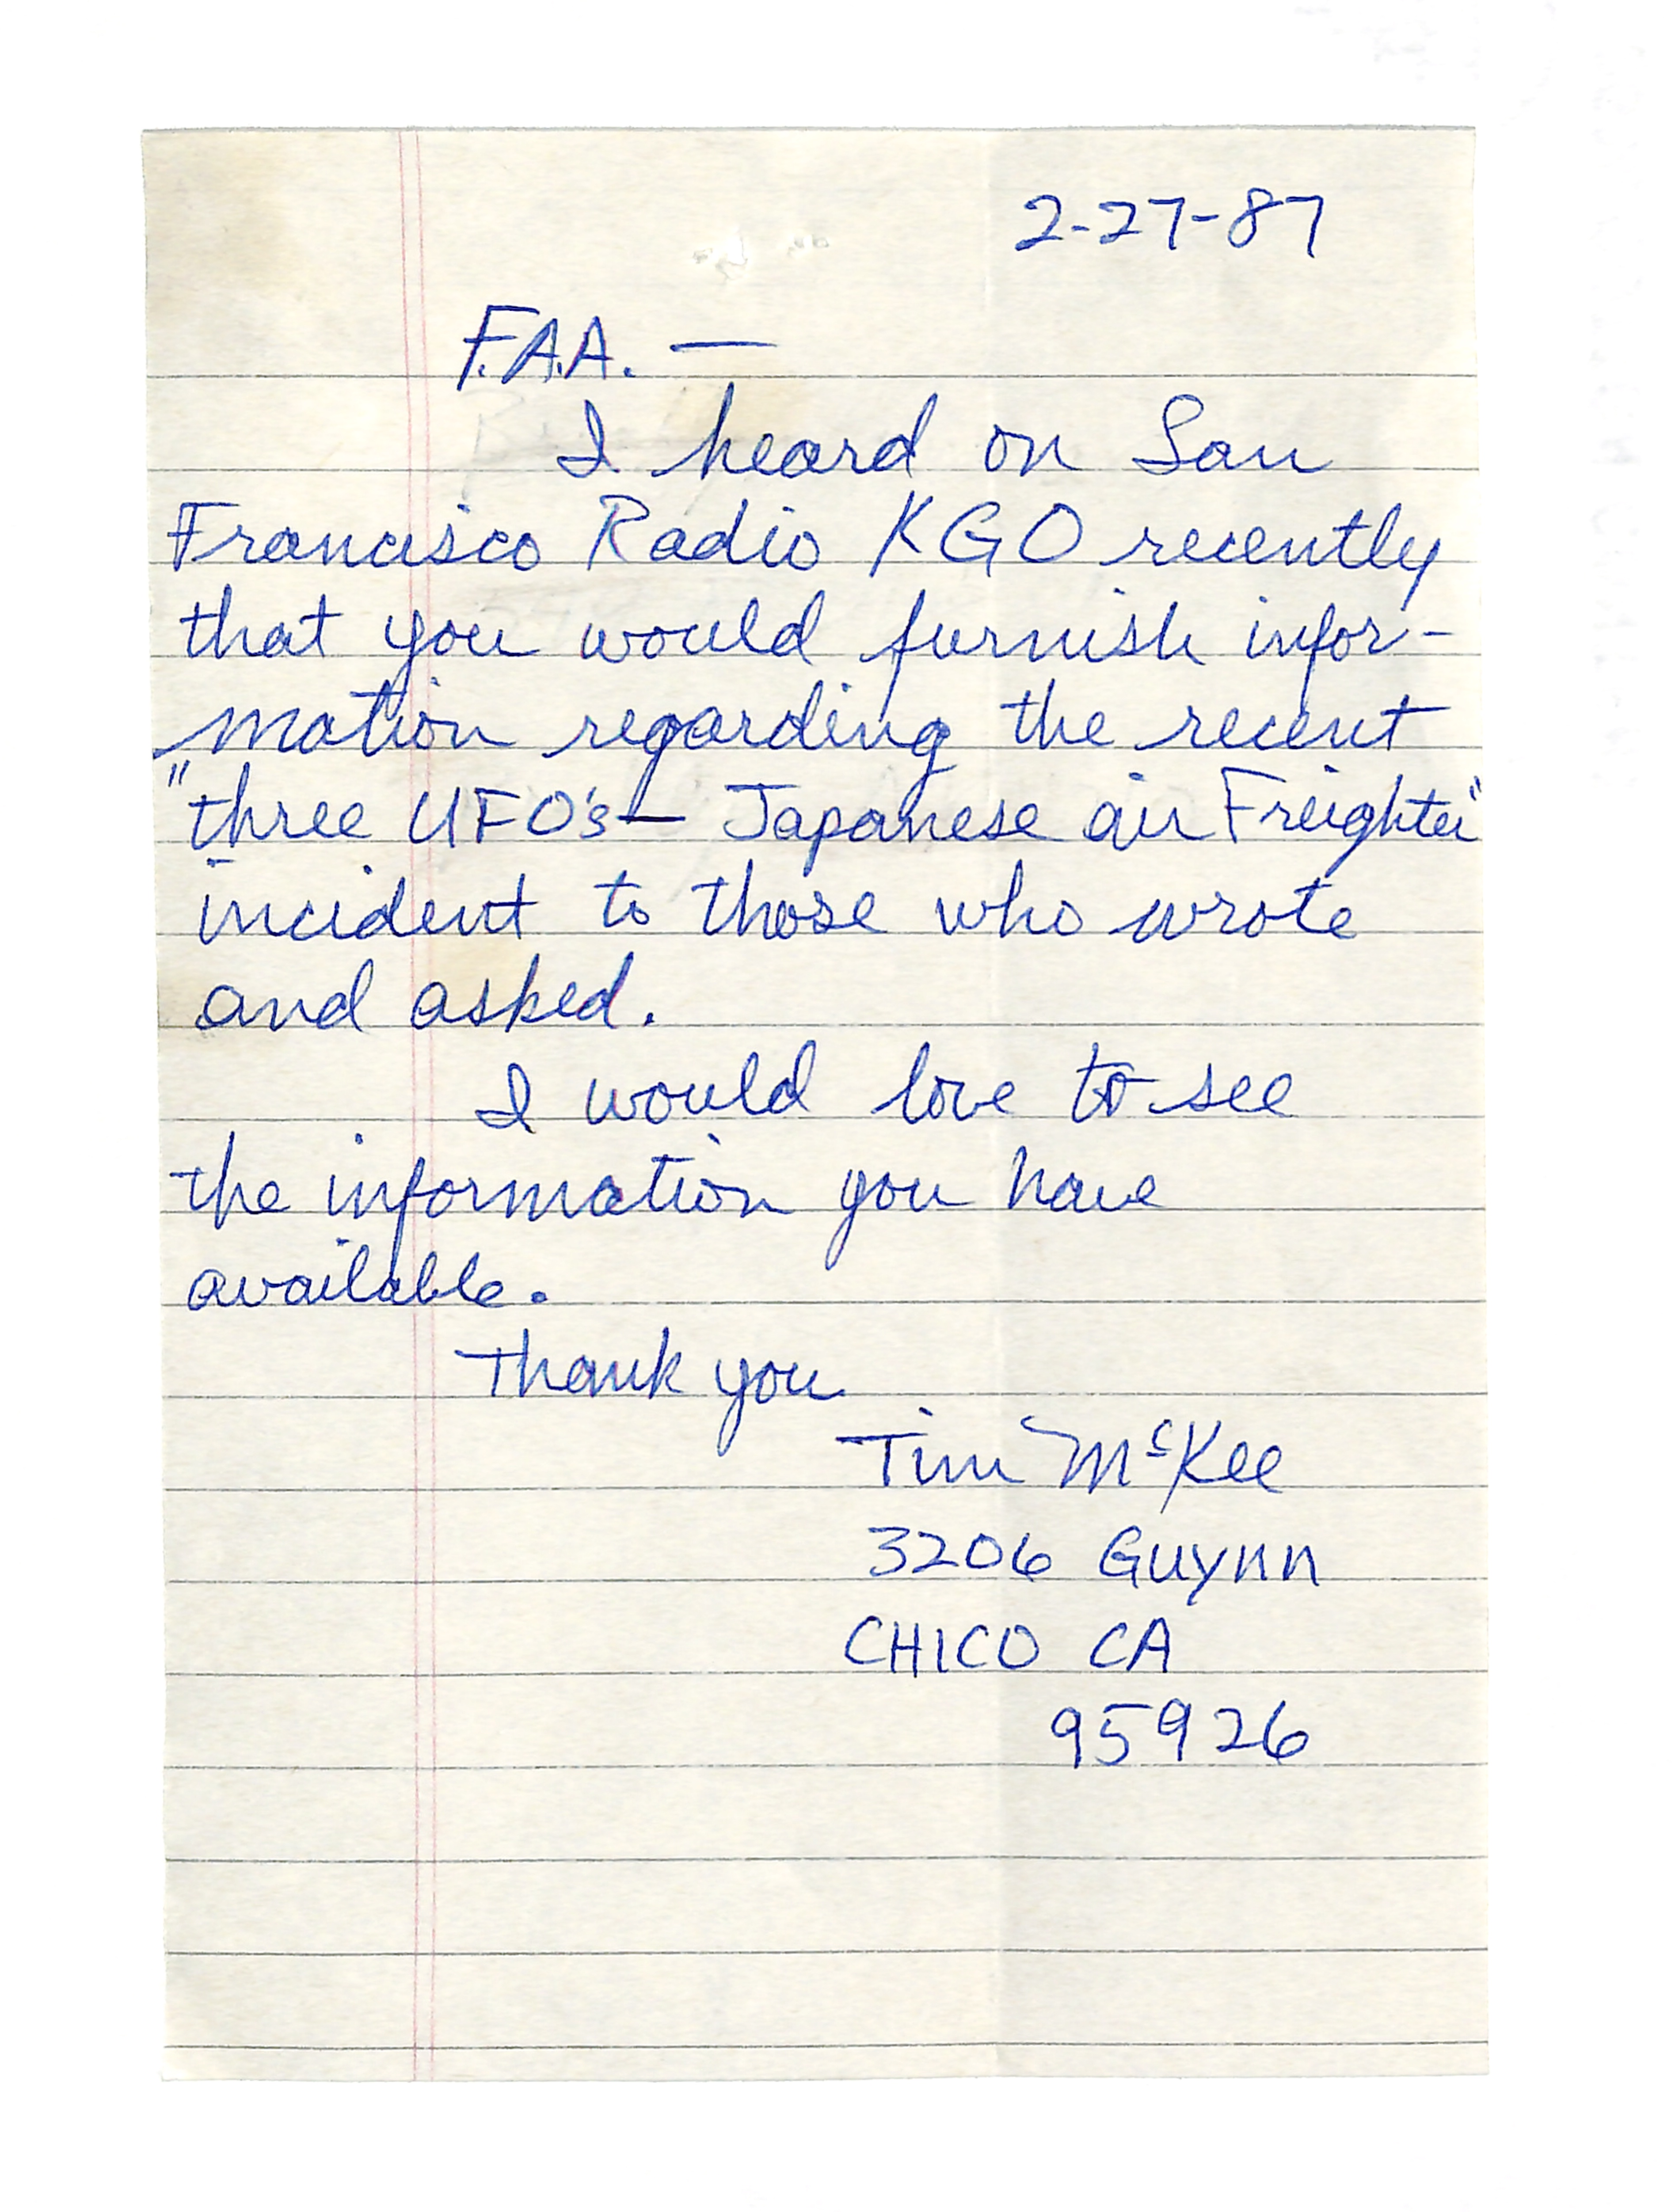 2-27-87
F.A.A. —
I heard on San
Francisco Radio KGO recently
that you would furnish infor-
mation regarding the recent
"three UFO's — Japanese air Freighter"
incident to those who wrote
and asked.
I would love to see
the information you have
available.
Thank you
Tim McKee
3206 Guynn
CHICO CA
95926